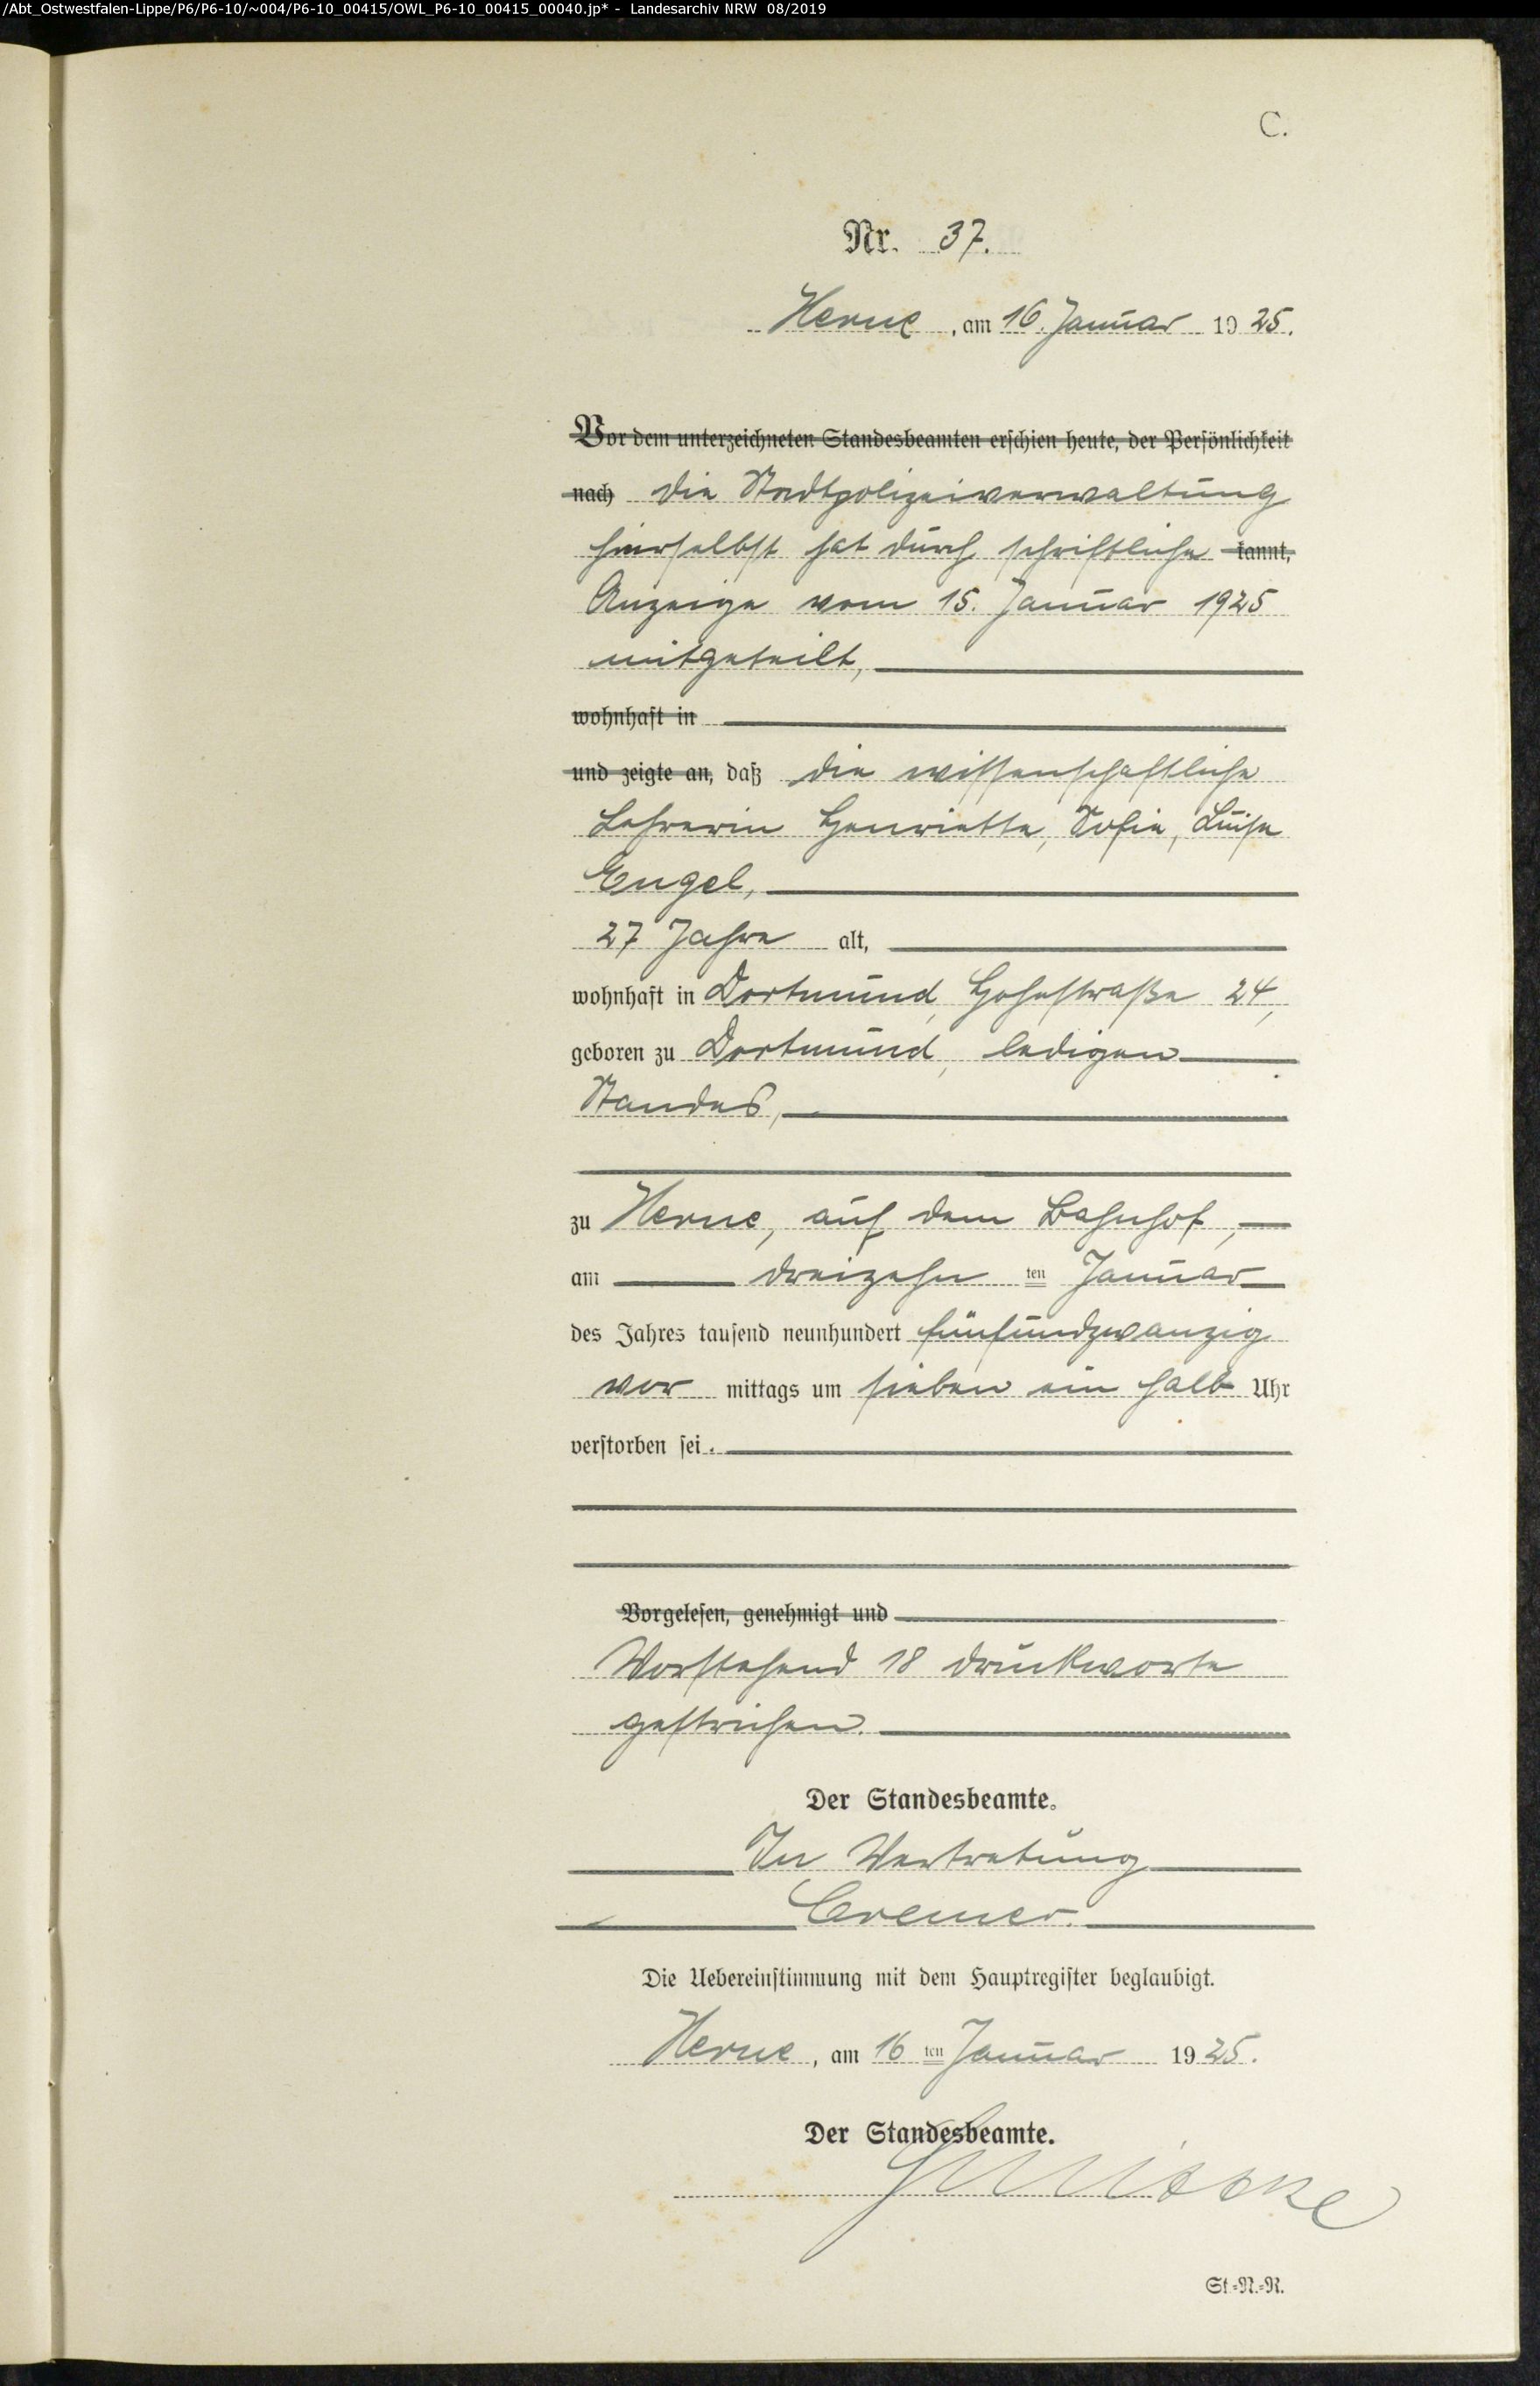 /Abt_Ostwestfalen-Lippe/P6/P6-10/~004/P6-10_00415/OWL_P6-10_00415_00040.jp* - Landesarchiv NRW 08/2019
C.
Nr. 37.
Herne, am 16. Januar 1925.
Vor dem unterzeichneten Standesbeamten erschien heute, der Persönlichkeit
nach die Stadtpolizeiverwaltung
hierselbst hat durch schriftliche kannt,
Anzeige vom 15. Januar 1925
mitgeteilt,
wohnhaft in
und zeigte an, daß die wissenschaftliche
Lehrerin Henriette, Sofie, Luise
Engel,
27 Jahre alt,
wohnhaft in Dortmund, Hohestraße 24,
geboren zu Dortmund, ledigen
Standes,
zu Herne, auf dem Bahnhof,
am dreizehn ten Januar
des Jahres tausend neunhundert fünfundzwanzig
vor mittags um sieben ein halb Uhr
verstorben sei.
Vorgelesen, genehmigt und
Vorstehend 18 Druckworte
gestrichen.
Der Standesbeamte.
In Vertretung
Cremer.
Die Uebereinstimmung mit dem Hauptregister beglaubigt.
Herne, am 16 ten Januar 1925.
Der Standesbeamte.
St.=N.=R.